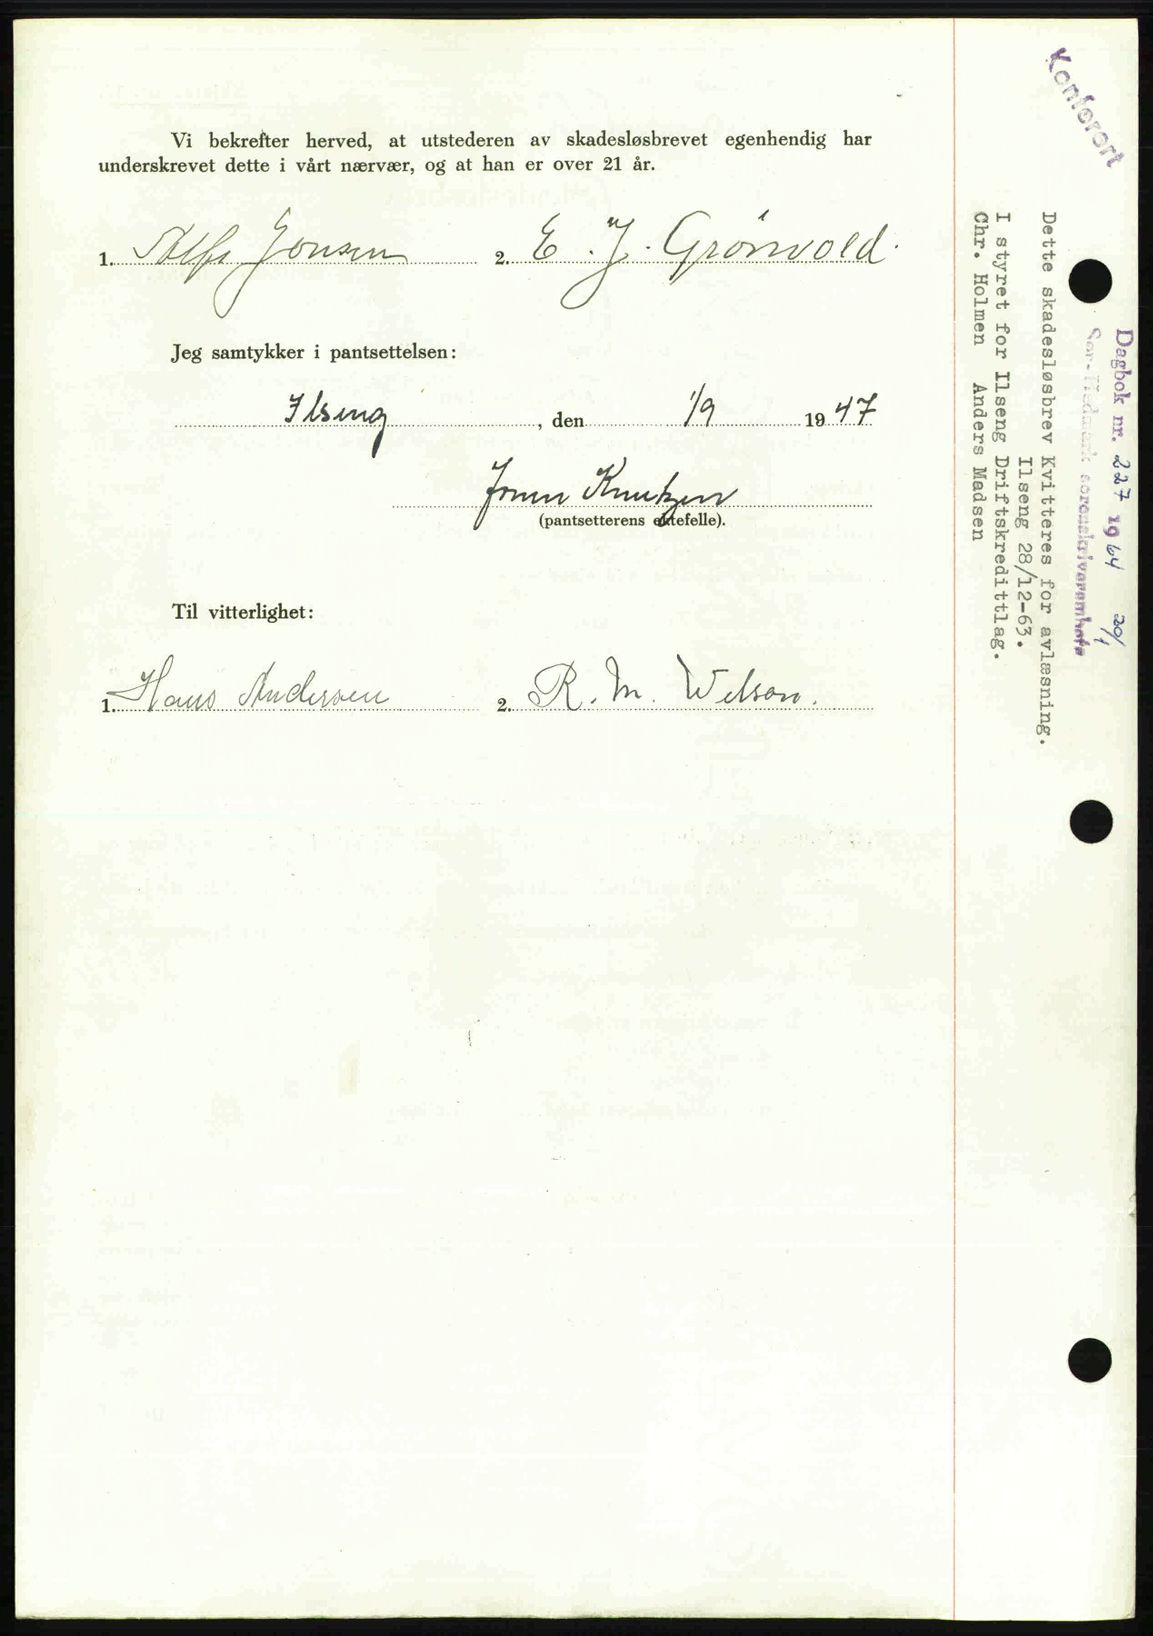 Vi bekrefter herved, at utstederen av skadesløsbrevet egenhendig har
underskrevet dette i vårt nærvær, og at han er over 21 år.
1. Jonsen 2. E. J. Grönvold.
Jeg samtykker i pantsettelsen:
Ilseng, den 1/9 1947
Knutzen
(pantsetterens ektefelle).
Til vitterlighet:
1. Hans Andersen 2. R. M. Wilson.
Konferert
Dagbok nr. 227 1964 20/1
Sør-Hedmark sorenskriverembete
Dette skadesløsbrev Kvitteres for avlæsning.
Ilseng 28/12-63.
I styret for Ilseng Driftskredittlag.
Chr. Holmen Anders Madsen